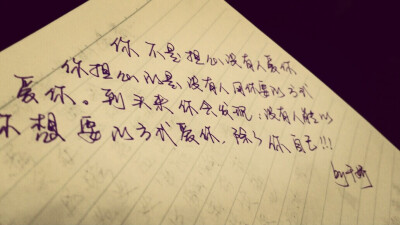 你不是担心没有人爱你
你担心的是没有人用你要的方式
爱你。到头来你会发现，没有人能以
你想要的方式爱你，除了你自己!!!
by